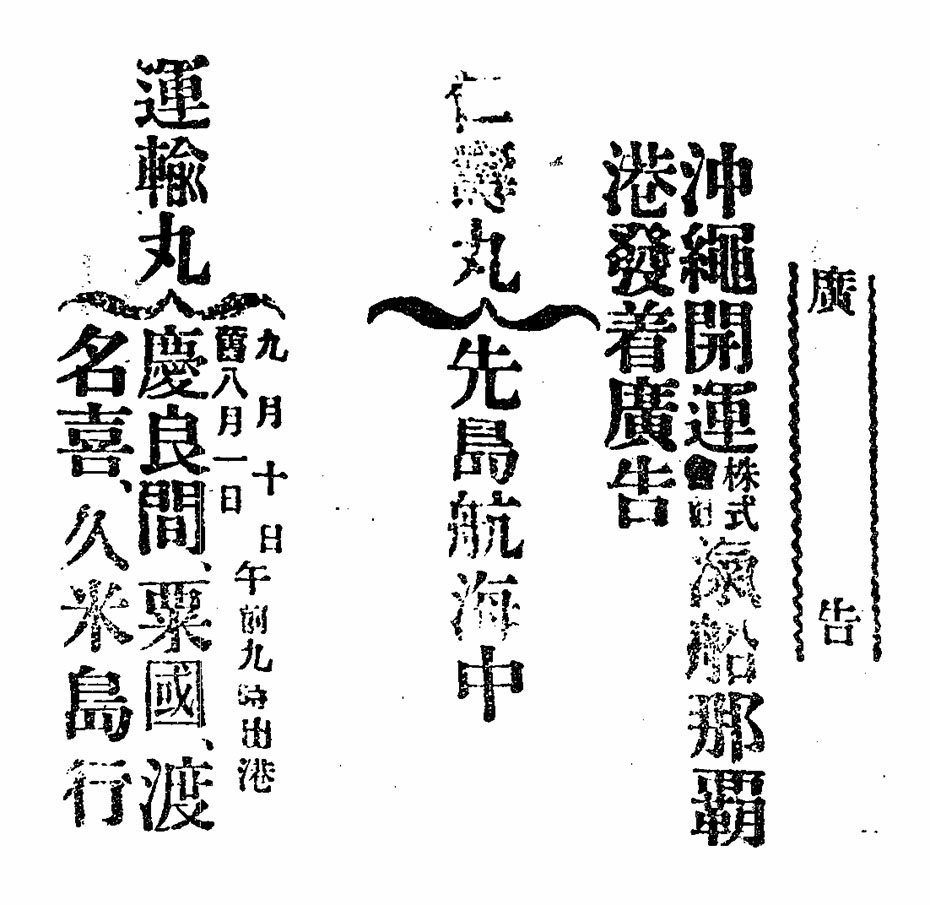 廣告
沖繩開運株式會社汽船那覇
港發着廣告
仁壽丸
先島航海中
運輸丸
九月十日
舊八月一日
午前九時出港
慶良間、粟國、渡
名喜、久米島行